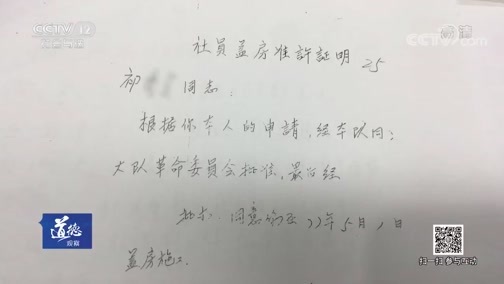 CCTV 12
社会与法
CCTV.com
央视网
社員盖房准許証明 25
初 同志:
根据你本人的申請,经本队同意
大队革命委員会批准,最后经
批示,同意 77年5月1日
盖房施工.
道德
观察
扫一扫参与互动